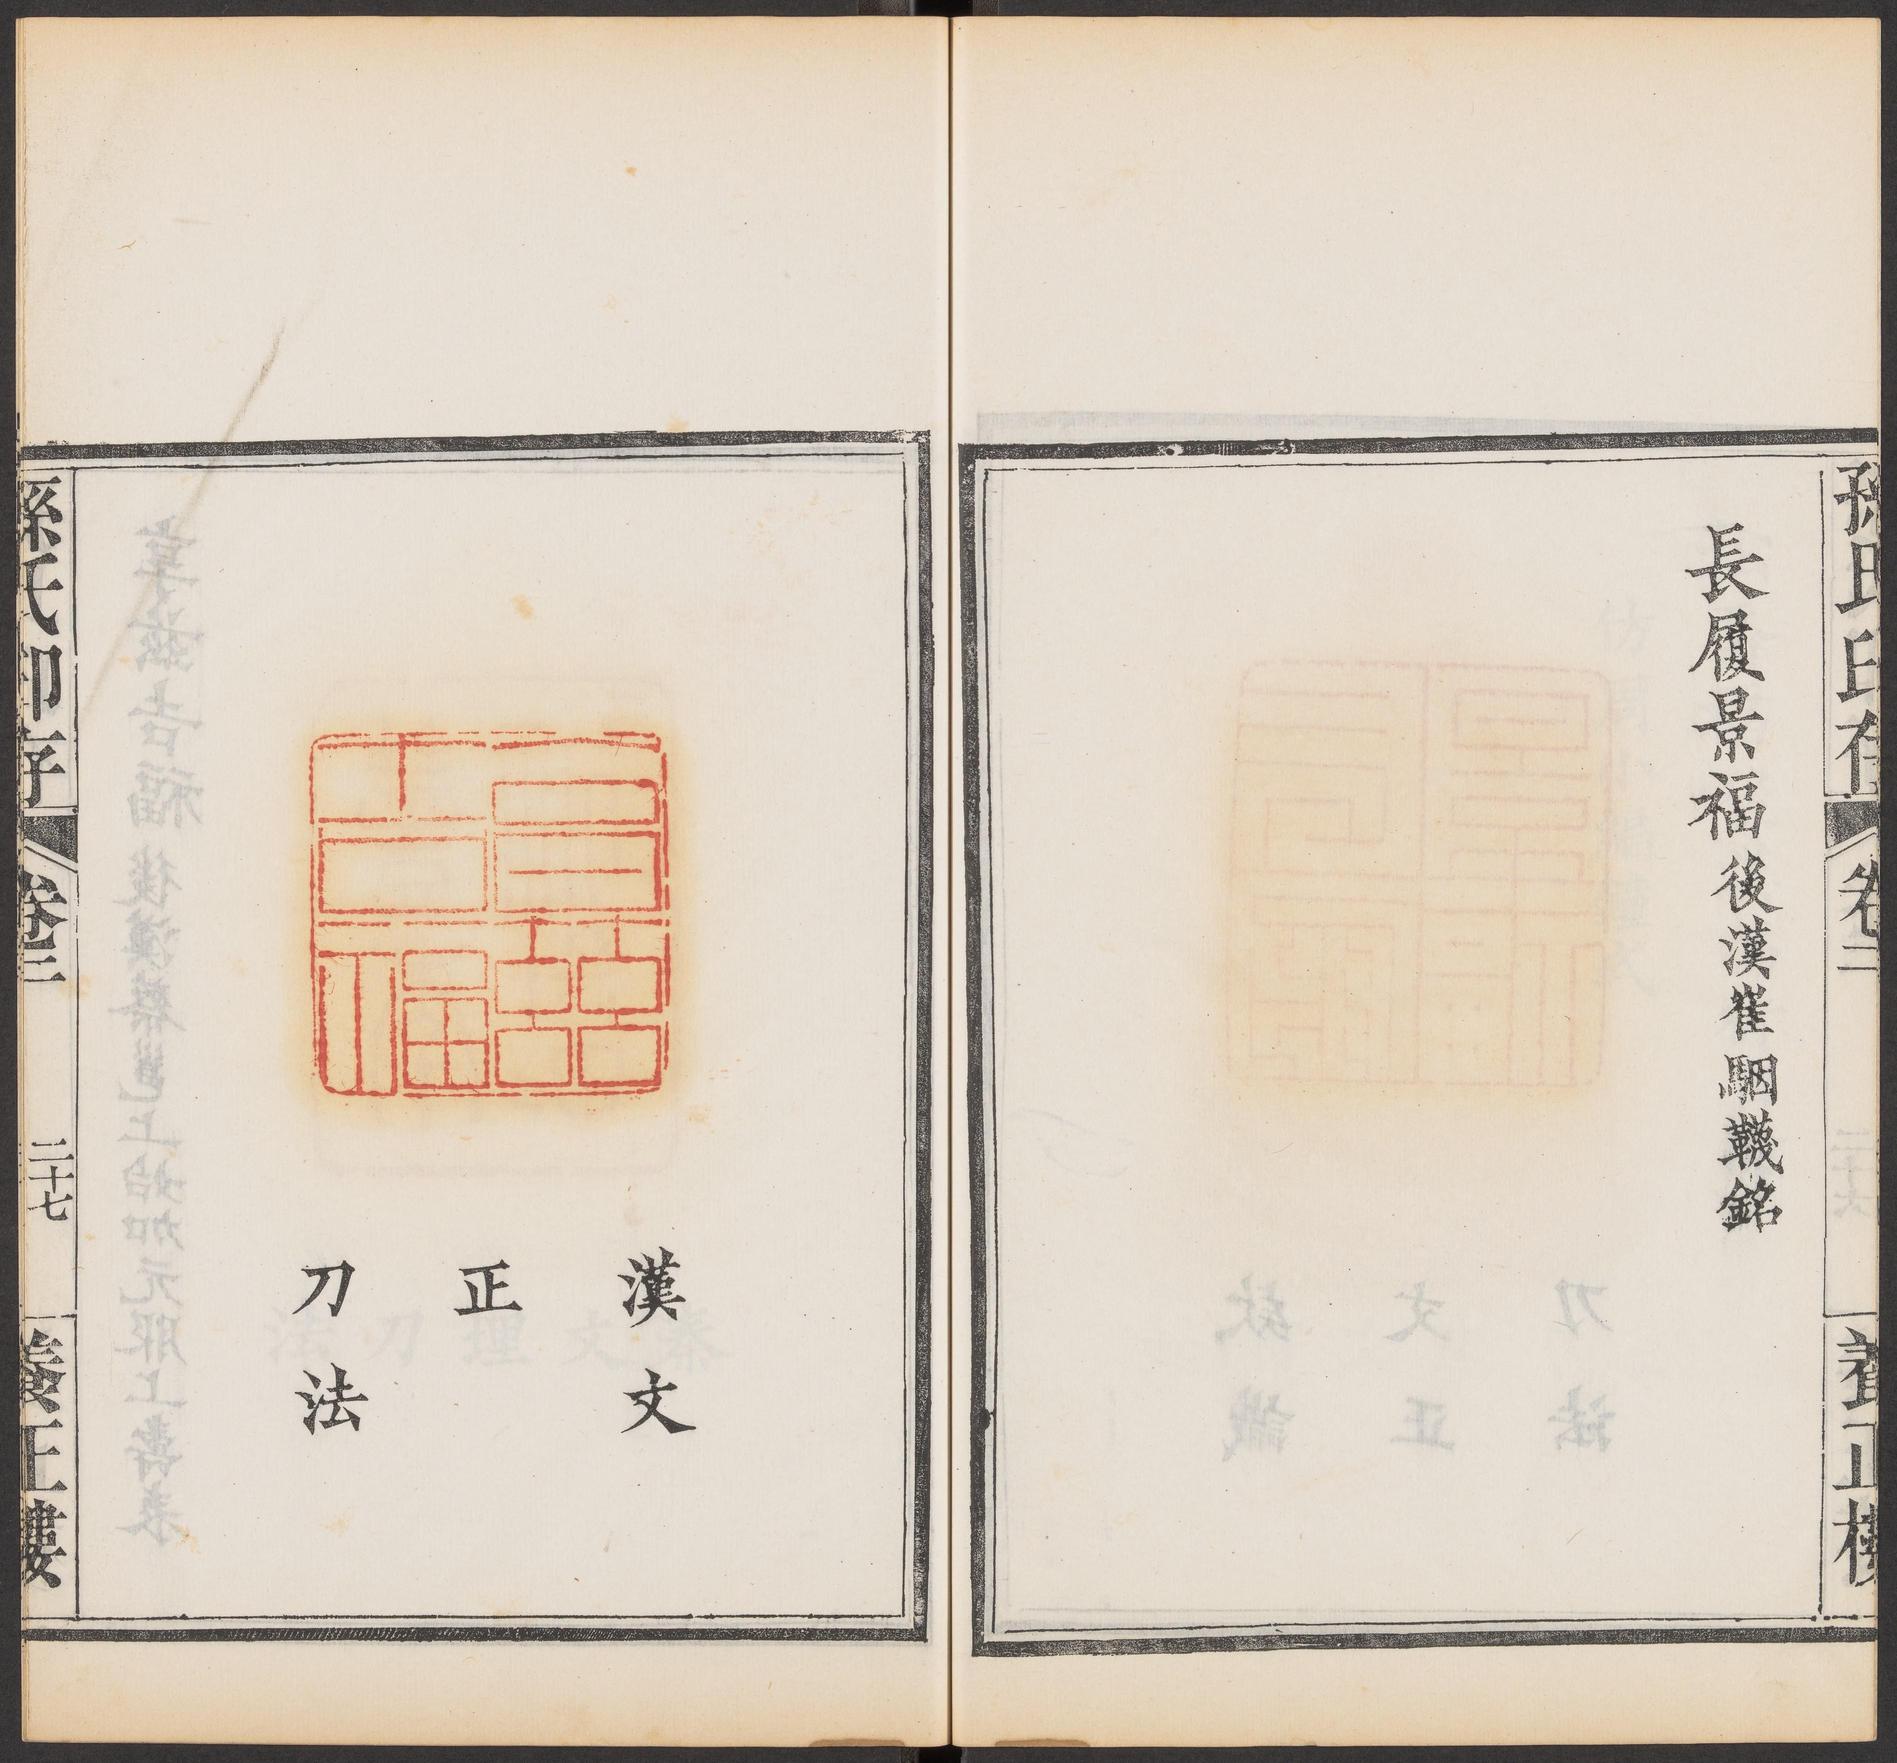 孫氏印存
卷二
養正樓
長履景福後漢崔駰韈銘
漢文
正
刀法
孫氏印存
卷二
二十七
養正樓